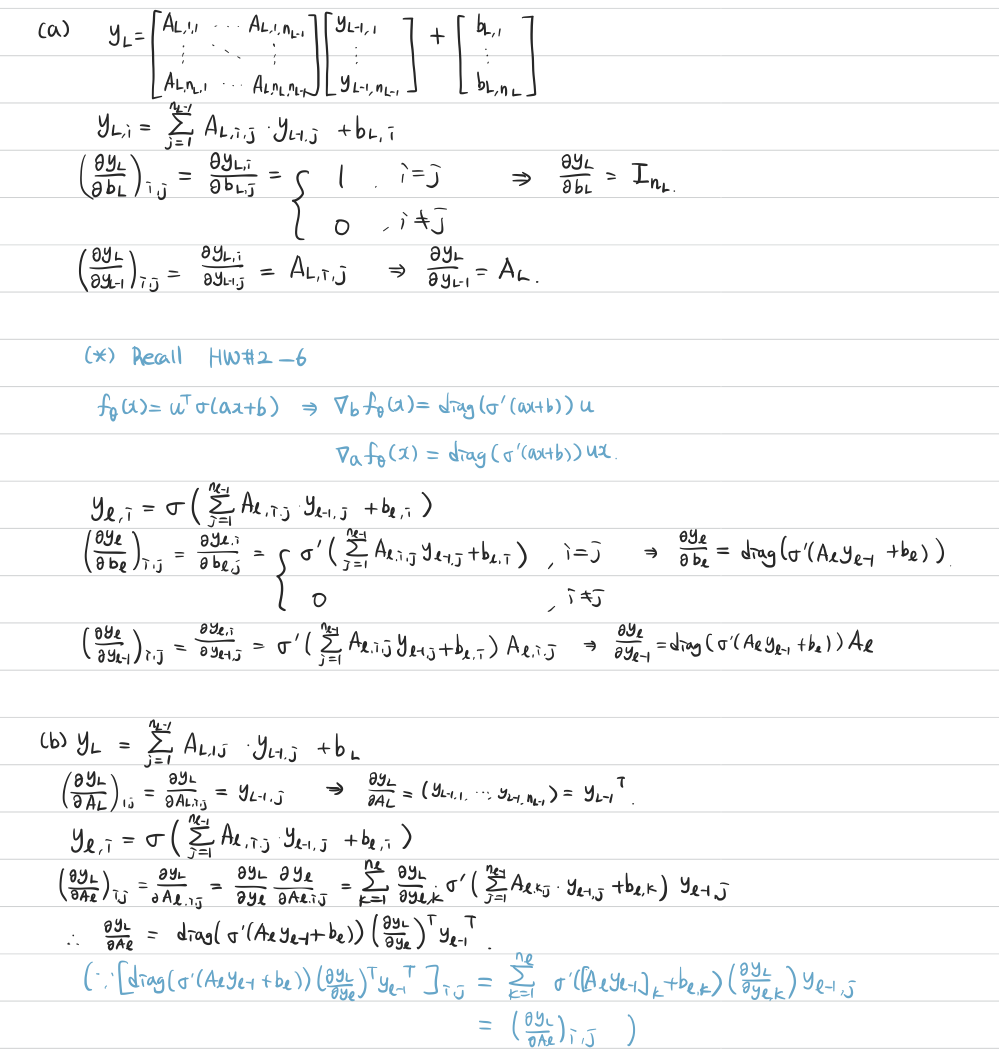 (a) y_L = [A_{L,1,1} ⋯ A_{L,1,n_{L-1}} ; ⋮ ⋱ ⋮ ; A_{L,n_L,1} ⋯ A_{L,n_L,n_{L-1}}] [y_{L-1,1} ; ⋮ ; y_{L-1,n_{L-1}}] + [b_{L,1} ; ⋮ ; b_{L,n_L}]
y_{L,i} = ∑_{j=1}^{n_{L-1}} A_{L,i,j} · y_{L-1,j} + b_{L,i}
(∂y_L/∂b_L)_{i,j} = ∂y_{L,i}/∂b_{L,j} = { 1 , i=j ⇒ ∂y_L/∂b_L = I_{n_L}.
0 , i≠j
(∂y_L/∂y_{L-1})_{i,j} = ∂y_{L,i}/∂y_{L-1,j} = A_{L,i,j} ⇒ ∂y_L/∂y_{L-1} = A_L.
(*) Recall HW#2-6
f_θ(x) = u^T σ(ax+b) ⇒ ∇_b f_θ(x) = diag(σ'(ax+b)) u
∇_a f_θ(x) = diag(σ'(ax+b)) ux.
y_{ℓ,i} = σ(∑_{j=1}^{n_{ℓ-1}} A_{ℓ,i,j} · y_{ℓ-1,j} + b_{ℓ,i})
(∂y_ℓ/∂b_ℓ)_{i,j} = ∂y_{ℓ,i}/∂b_{ℓ,j} = { σ'(∑_{j=1}^{n_{ℓ-1}} A_{ℓ,i,j} y_{ℓ-1,j} + b_{ℓ,i}) , i=j ⇒ ∂y_ℓ/∂b_ℓ = diag(σ'(A_ℓ y_{ℓ-1} + b_ℓ)).
0 , i≠j
(∂y_ℓ/∂y_{ℓ-1})_{i,j} = ∂y_{ℓ,i}/∂y_{ℓ-1,j} = σ'(∑_{j=1}^{n_{ℓ-1}} A_{ℓ,i,j} y_{ℓ-1,j} + b_{ℓ,i}) A_{ℓ,i,j} ⇒ ∂y_ℓ/∂y_{ℓ-1} = diag(σ'(A_ℓ y_{ℓ-1} + b_ℓ)) A_ℓ
(b) y_L = ∑_{j=1}^{n_{L-1}} A_{L,1,j} · y_{L-1,j} + b_L
(∂y_L/∂A_L)_{1,j} = ∂y_L/∂A_{L,i,j} = y_{L-1,j} ⇒ ∂y_L/∂A_L = (y_{L-1,1}, ⋯, y_{L-1,n_{L-1}}) = y_{L-1}^T.
y_{ℓ,i} = σ(∑_{j=1}^{n_{ℓ-1}} A_{ℓ,i,j} · y_{ℓ-1,j} + b_{ℓ,i})
(∂y_L/∂A_ℓ)_{i,j} = ∂y_L/∂A_{ℓ,i,j} = ∂y_L/∂y_ℓ ∂y_ℓ/∂A_{ℓ,i,j} = ∑_{k=1}^{n_ℓ} ∂y_L/∂y_{ℓ,k} · σ'(∑_{j=1}^{n_{ℓ-1}} A_{ℓ,k,j} · y_{ℓ-1,j} + b_{ℓ,k}) y_{ℓ-1,j}
∴ ∂y_L/∂A_ℓ = diag(σ'(A_ℓ y_{ℓ-1} + b_ℓ)) (∂y_L/∂y_ℓ)^T y_{ℓ-1}^T.
(∵ [diag(σ'(A_ℓ y_{ℓ-1} + b_ℓ)) (∂y_L/∂y_ℓ)^T y_{ℓ-1}^T]_{i,j} = ∑_{k=1}^{n_ℓ} σ'([A_ℓ y_{ℓ-1}]_k + b_{ℓ,k}) (∂y_L/∂y_{ℓ,k}) y_{ℓ-1,j}
= (∂y_L/∂A_ℓ)_{i,j} )